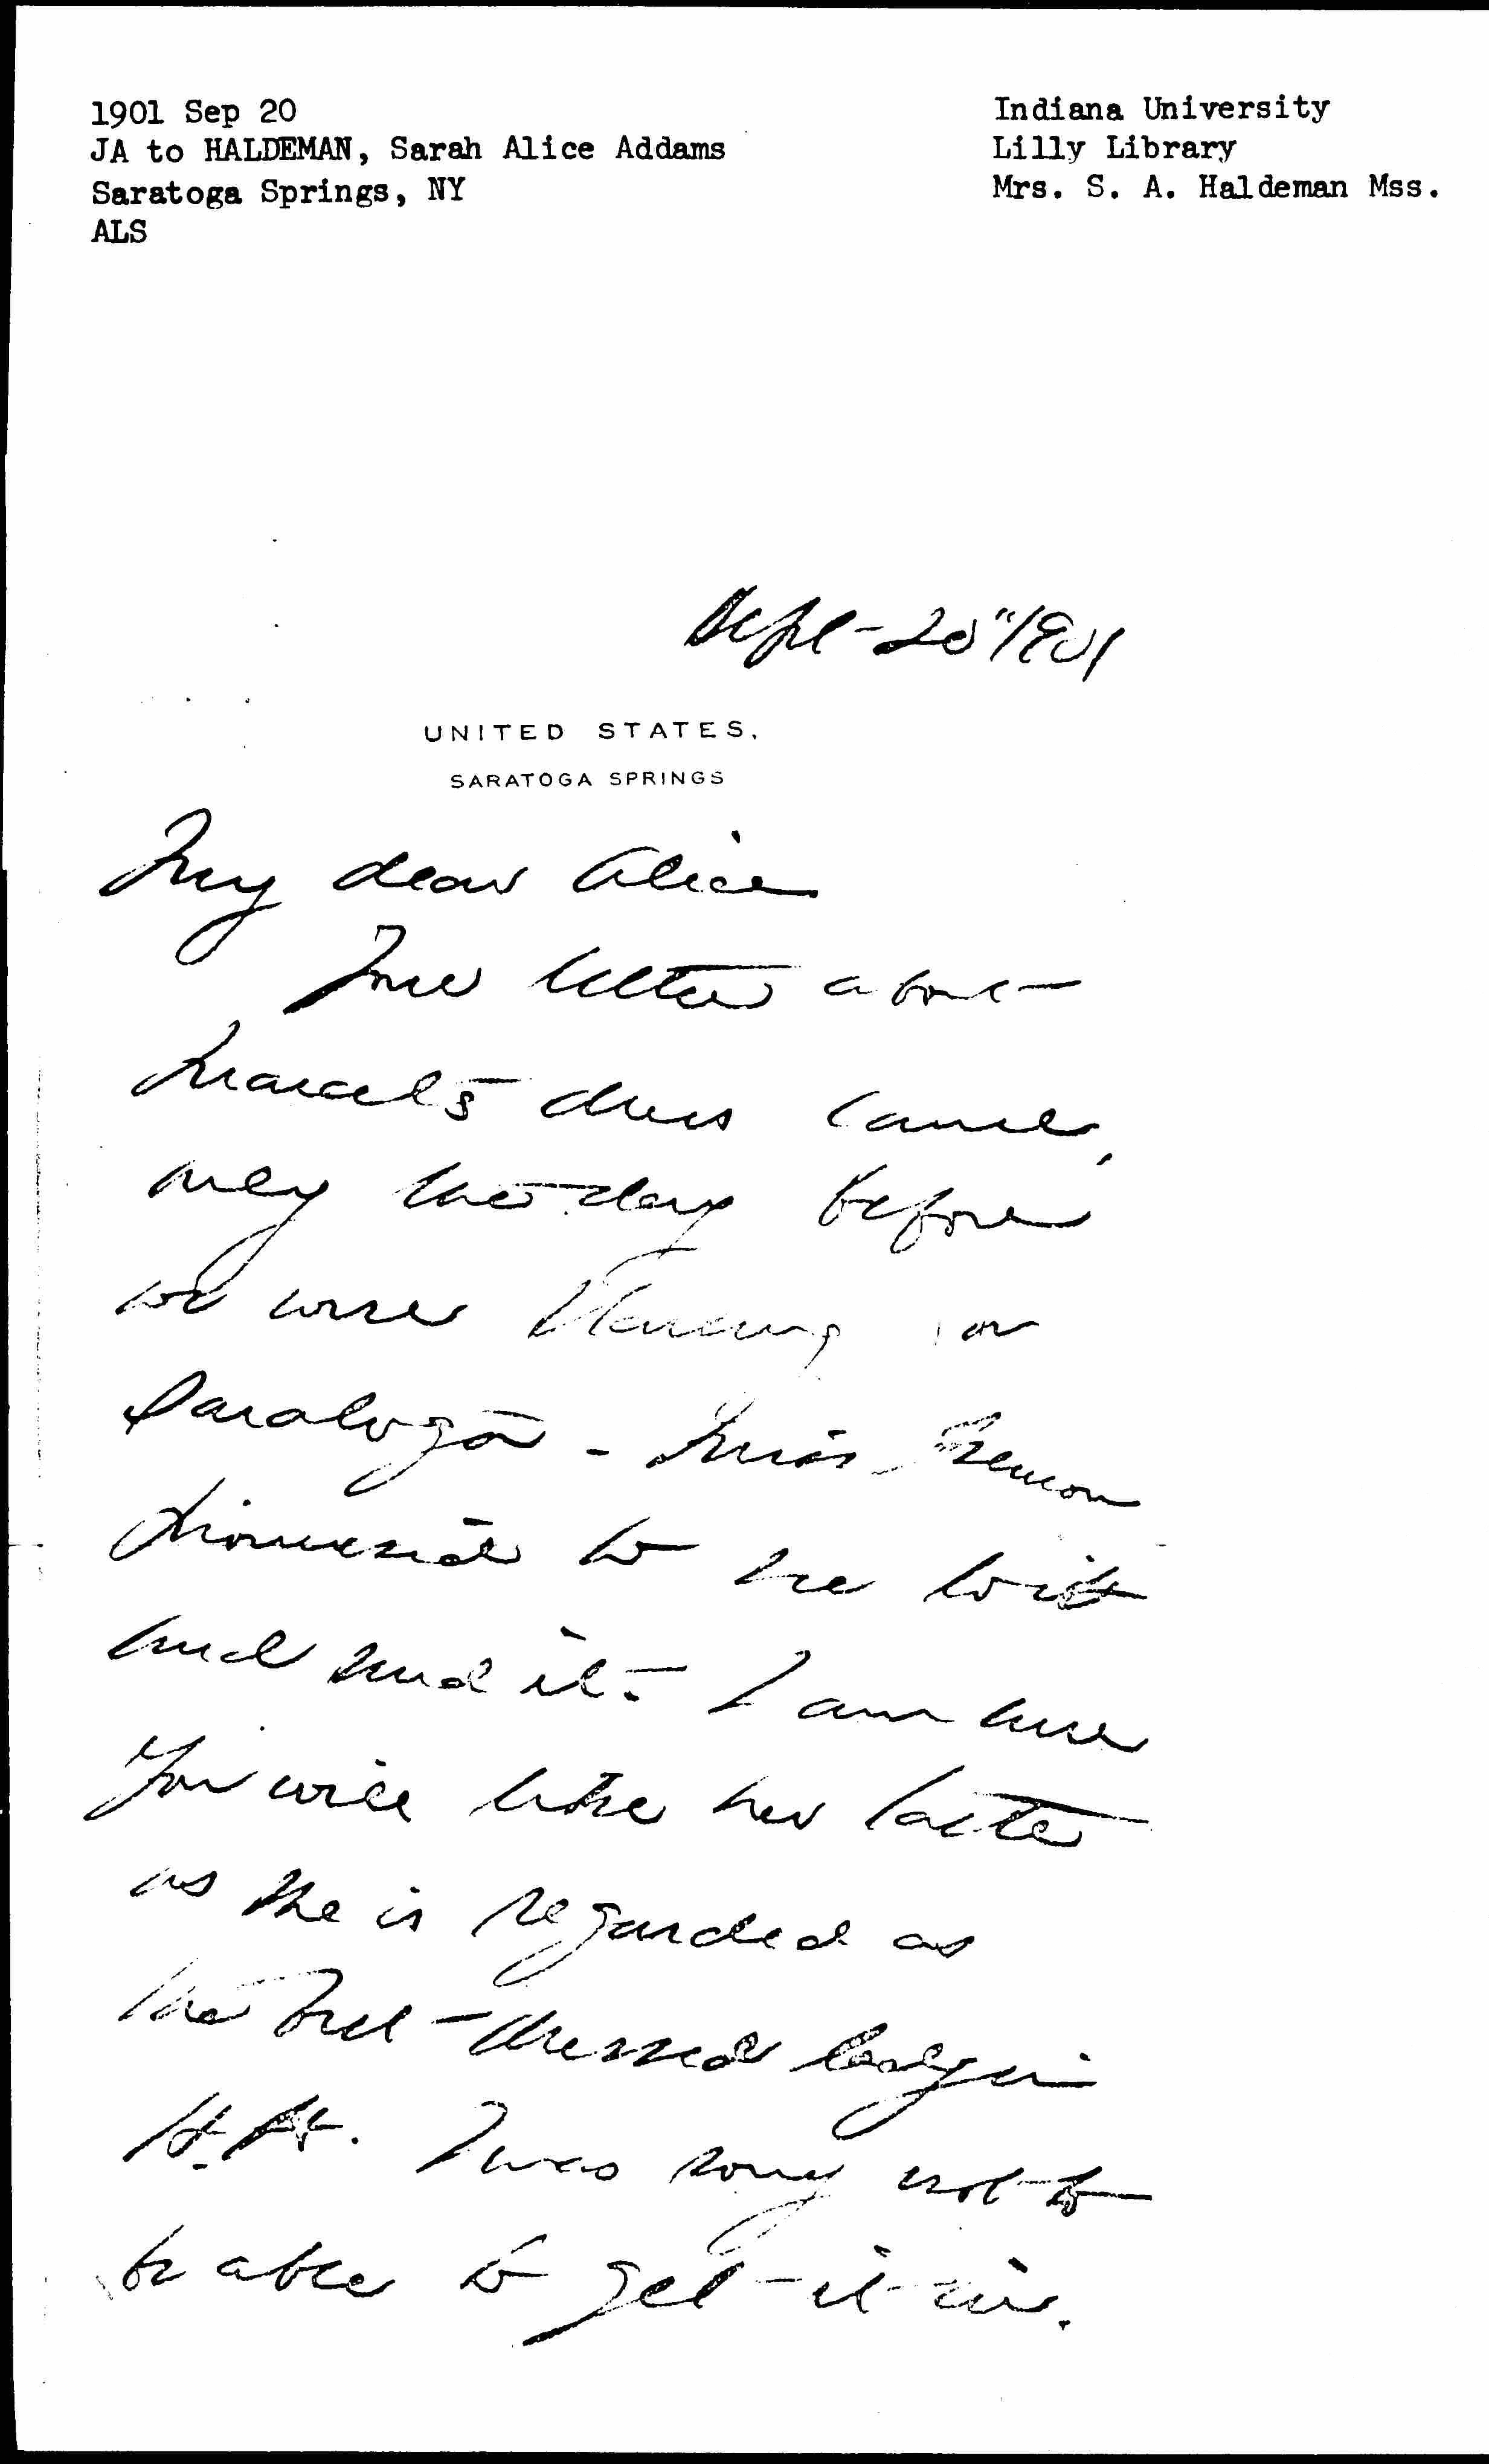 1901 Sep 20
JA to HALDEMAN, Sarah Alice Addams
Saratoga Springs, NY
ALS
Indiana University
Lilly Library
Mrs. S. A. Haldeman Mss.
Sept- 20" 1901
UNITED STATES,
SARATOGA SPRINGS
My dear Alice
Your letter about
Marcet's dress came,
only the day before
we were starting for
Saratoga - Miss
promised to see to it
and send it - I am sure
you will like her taste
as she is regarded as
the best-dressed lady in
H.H. I was sorry not to
be able to get it in.